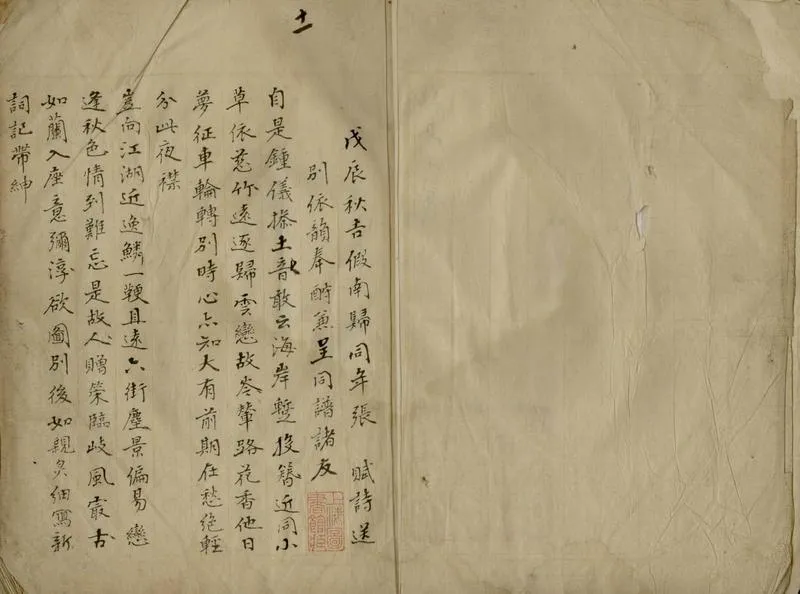 十一
戊辰秋告假南歸同年張 賦詩送
別依韻奉酧兼呈同譜諸友
自是鍾儀操土音敢云海岸暫投簪近同小
草依慈竹遠逐歸雲戀故岑輦路花香他日
夢征車輪轉別時心亦知大有前期在愁絕輕
分此夜襟
豈向江湖近逸鱗一鞭且遠六街塵景偏易戀
逢秋色情到難忘是故人贈策臨歧風最古
如蘭入座意彌淳欲圖別後如親炙細寫新
詞記帶紳
上海圖
書館藏